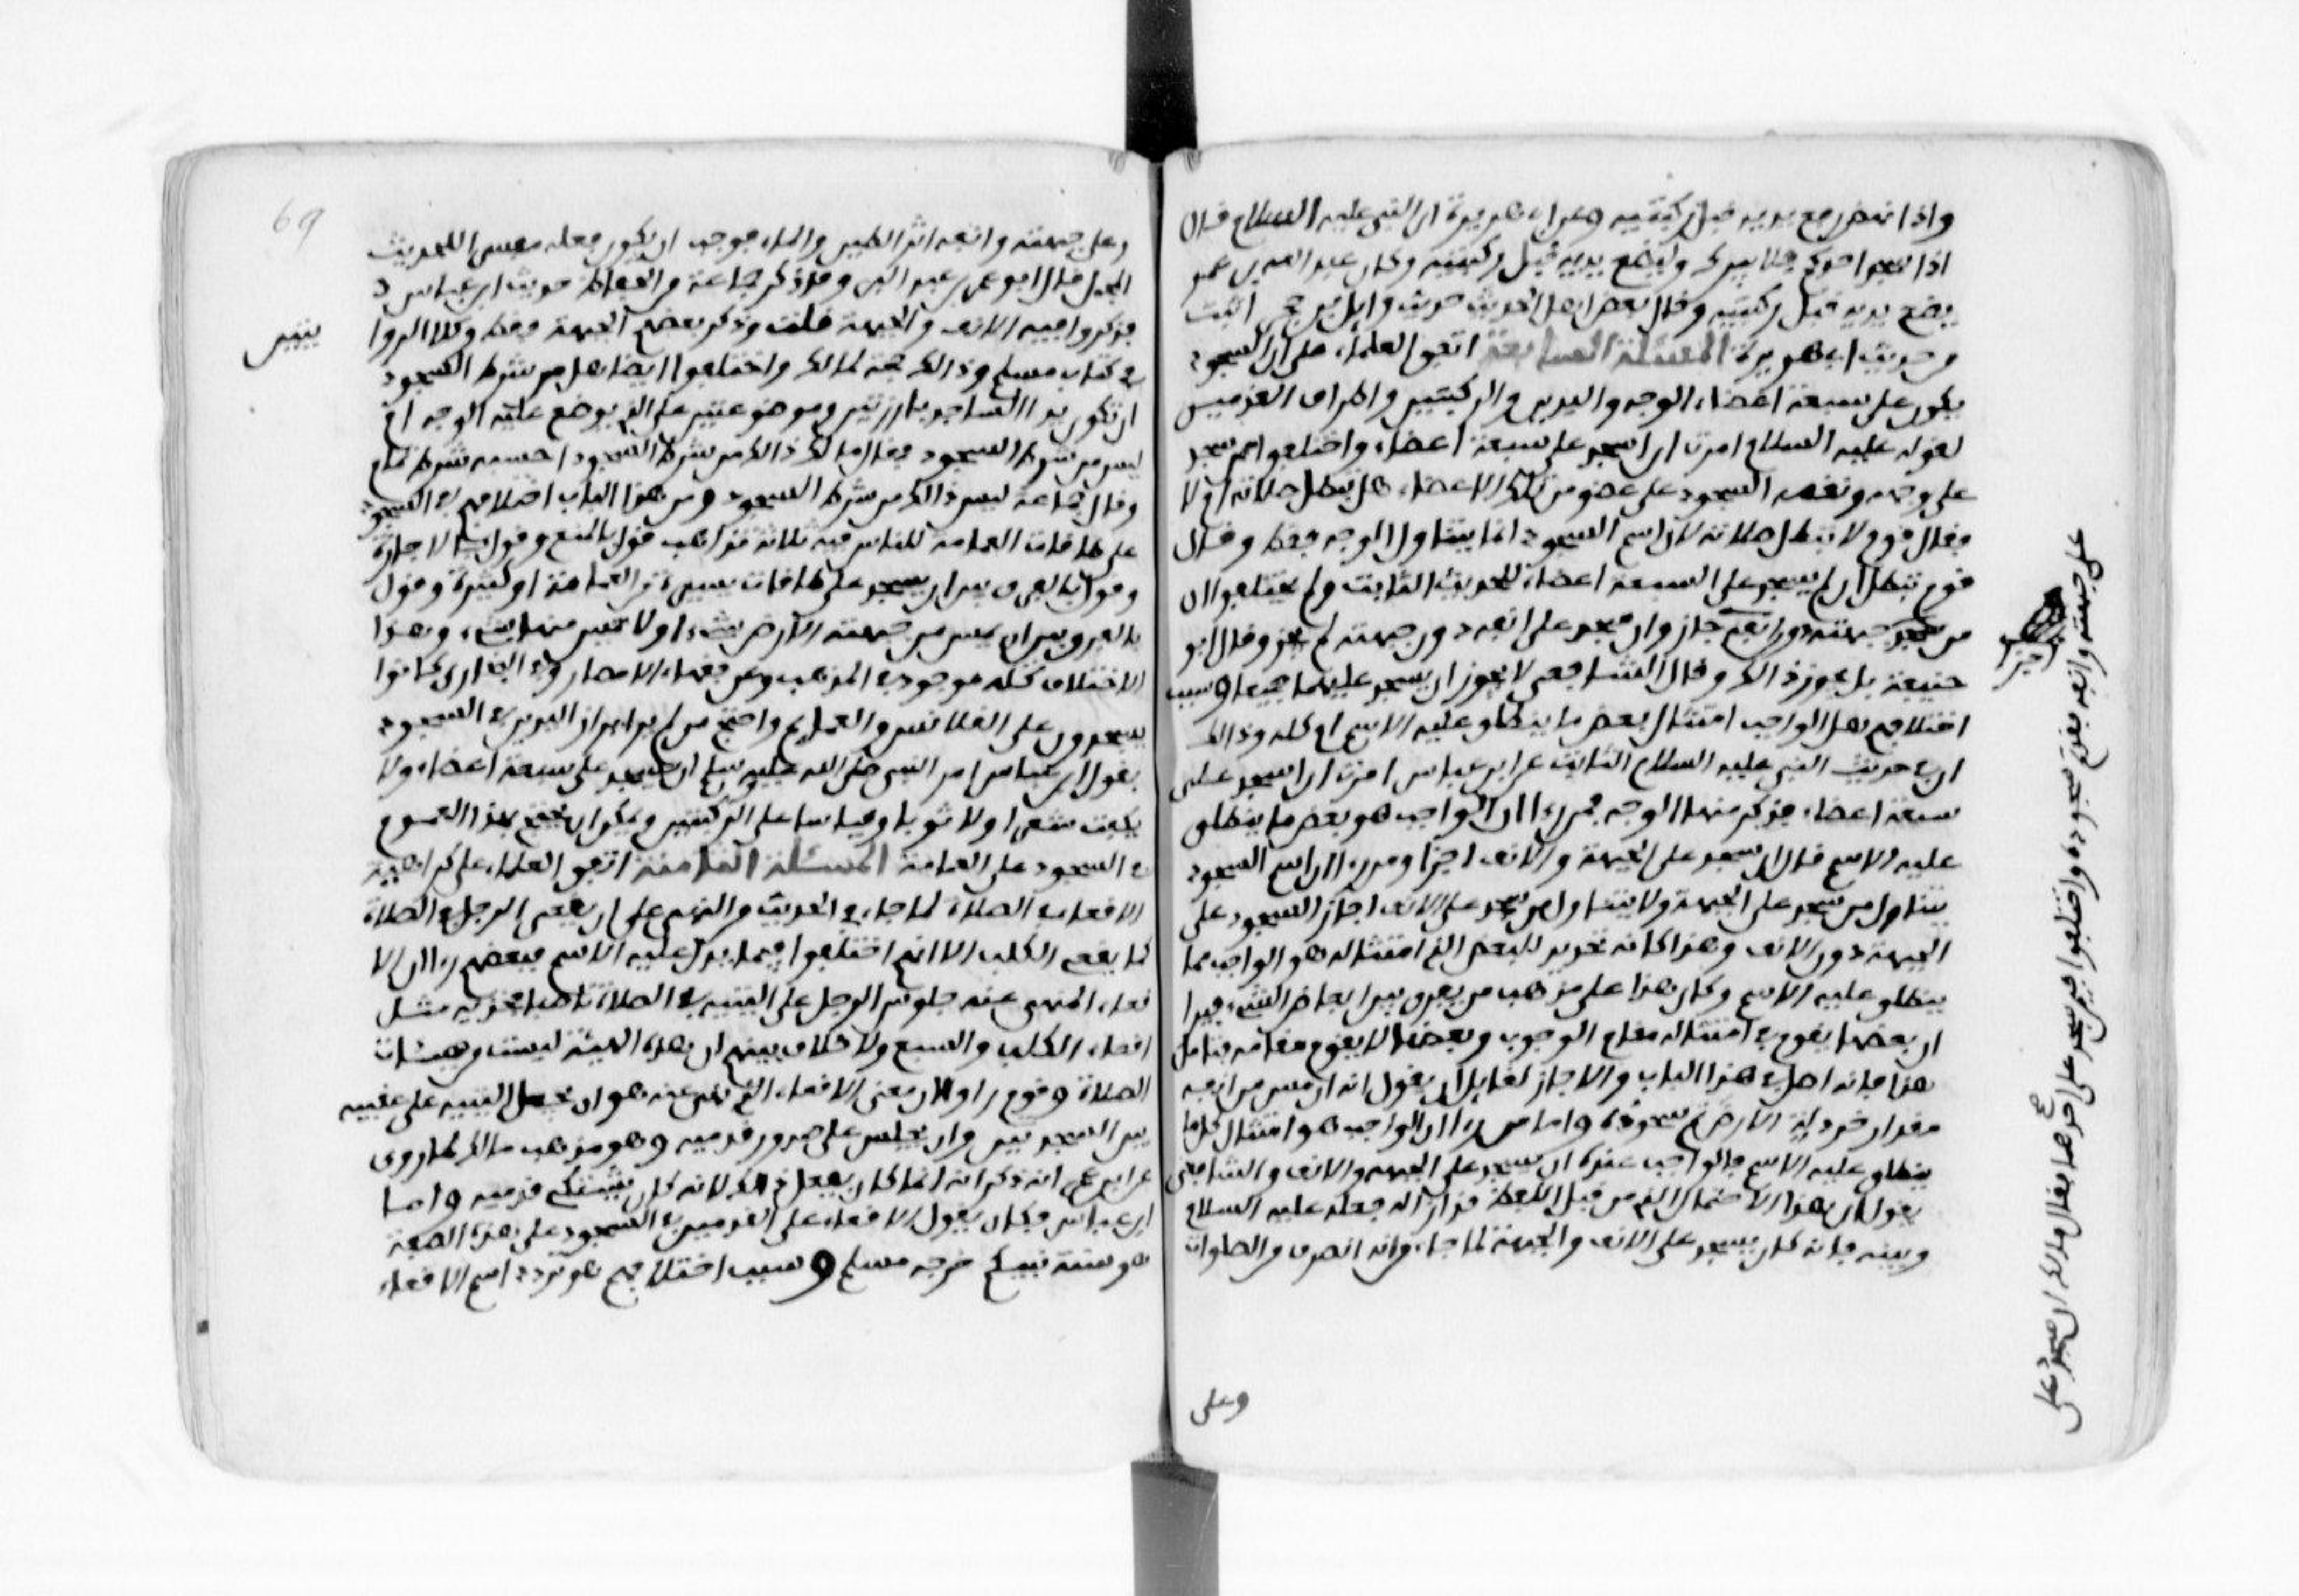 واذا نهض رفع يديه قبل ركبتيه وعن ابي هريرة ان النبي عليه السلام قال
اذا سجد احدكم فلا يبرك وليضع يديه قبل ركبتيه وكان عبد الله بن عمر
يضع يديه قبل ركبتيه وقال بعض اهل الحديث حديث وايل بن حجر اثبت
من حديث ابي هريرة المسئلة السابعة اتفق العلماء على ان السجود
يكون على سبعة اعضاء الوجه واليدين والركبتين واطراف القدمين
لقوله عليه السلام امرت ان اسجد على سبعة اعضاء واختلفوا فيمن سجد
على وجهه ونقصه السجود على عضو من تلك الاعضاء هل تبطل صلاته ام لا
فقال قوم لا تبطل صلاته لان اسم السجود انما يتناول الوجه فقط وقال
قوم تبطل ان لم يسجد على السبعة اعضاء للحديث الثابت ولم يختلفوا ان
من سجد جبهته دون انفه جاز وان سجد على انفه دون جبهته لم يجز وقال ابو
حنيفة بل يجوز ذالك وقال الشافعي لا يجوز ان يسجد عليهما جميعا وسبب
اختلافهم هل الواجب امتثال بعض ما ينطلق عليه الاسم ام كله وذالك
ان في حديث النبي عليه السلام الثابت عن ابن عباس امرت ان اسجد على
سبعة اعضاء فذكر منها الوجه فمن راى ان الواجب هو بعض ما ينطلق
عليه الاسم قال ان سجد على الجبهة والانف اجزا ومن راى ان اسم السجود
يتناول من سجد على الجبهة ولا يتناول من سجد على الانف اجاز السجود على
الجبهة دون الانف وهذا كانه تحديد للبعض الذي امتثاله هو الواجب مما
ينطلق عليه الاسم وكان هذا على مذهب من يفرق بين ابعاض الشيء فيرا
ان بعضها يقوم في امتثاله مقام الوجوب وبعضها لا يقوم مقامه فتامل
هذا فانه اصل في هذا الباب والا جاز لقايل ان يقول انه ان مس من انفه
مقدار خردلة الارض تم سجوده واما من راى ان الواجب هو امتثال كل ما
ينطلق عليه الاسم فالواجب عنده ان يسجد على الجبهة والانف والشافعي
يقول ان هذا الاحتمال الذي من قبل اللفظ قد ازاله فعله عليه السلام
وبينه فانه كان يسجد على الانف والجبهة لما جاء من انه انصرف من الصلوات
وعلى
على جبهته وانفه فقد تم سجوده واختلفوا فيمن سجد على احدهما فقال مالك ان سجد على
وعلى جبهته وانفه اثر الطين والماء فوجب ان يكون فعله مفسرا للحديث
المجمل قال ابو عمر بن عبد البر وقد ذكر جماعة من الحفاظ حديث ابن عباس
فذكروا فيه الانف والجبهة قلت وذكر بعضهم الجبهة فقط وكلا الروا
يتين
في كتاب مسلم وذالك حجة لمالك واختلفوا ايضا هل من شرط السجود
ان تكون يد الساجد بارزتين وموضوعتين على الذي يوضع عليه الوجه ام
ليس من شرط السجود فقال مالك ذالك من شرط السجود احسبه شرط تمام
وقال جماعة ليس ذالك من شرط السجود ومن هذا الباب اختلافهم في السجود
على طاقات العمامة للناس فيه ثلاثة مذاهب قول بالمنع وقول بالاجازة
وقول بالفرق بين ان يسجد على طاقات يسيرة من العمامة او كثيرة وقول
بالفرق بين ان يمس من جبهته الارض شيء او لا يمس منها شيء وهذا
الاختلاف كله موجود في المذهب وعن فقهاء الامصار وفي البخاري كانوا
يسجدون على القلانس والعمايم واحتج من لم ير ابراز اليدين في السجود
بقول ابن عباس امر النبي صلى الله عليه وسلم ان يسجد على سبعة اعضاء ولا
يكفت شعرا ولا ثوبا وقياسا على الركبتين ويمكن ان يحتج بهذا العموم
في السجود على العمامة المسئلة الثامنة اتفق العلماء على كراهية
الاقعاء في الصلاة لما جاء في الحديث من النهي على ان يقعي الرجل في الصلاة
كما يقعي الكلب الا انهم اختلفوا فيما يدل عليه الاسم فبعضهم راى ان الا
قعاء المنهي عنه جلوس الرجل على اليتيه في الصلاة ناصبا فخذيه مثل
اقعاء الكلب والسبع ولا خلاف بينهم ان هذه الهيئة ليست من هيئات
الصلاة وقوم راوا ان معنى الاقعاء الذي نهي عنه هو ان يجعل اليتيه على عقبيه
بين السجدتين وان يجلس على صدور قدميه وهو مذهب مالك لما روى
عن ابن عمر انه ذكر انه انما كان يفعل ذالك لانه كان يشتكي قدميه واما
ابن عباس فكان يقول الاقعاء على القدمين في السجود على هذه الصفة
هو سنة نبيكم خرجه مسلم وسبب اختلافهم هو تردد اسم الاقعاء
69